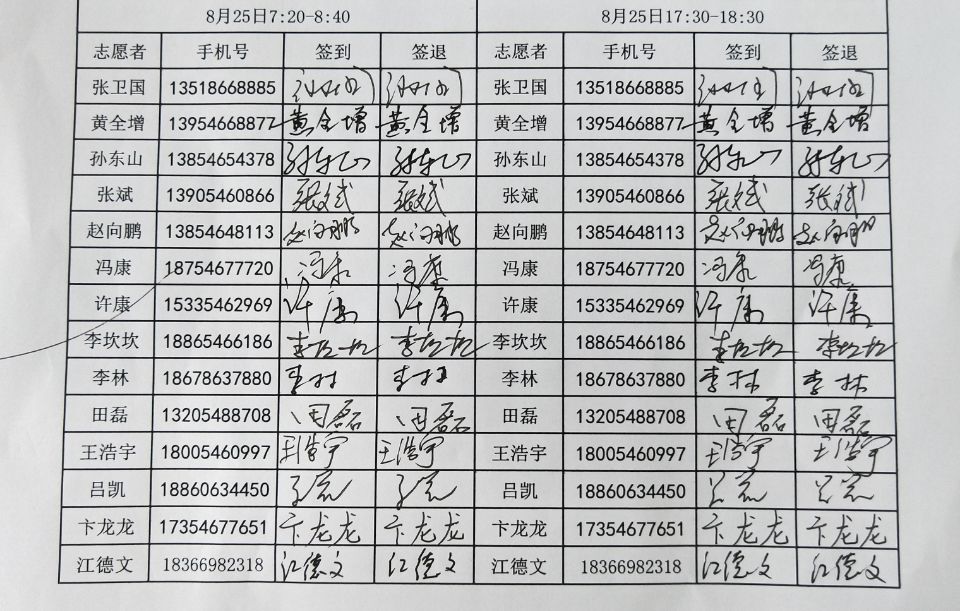 8月25日7:20-8:40 8月25日17:30-18:30
志愿者 手机号 签到 签退 志愿者 手机号 签到 签退
张卫国 13518668885 张卫国 13518668885
黄全增 13954668877 黄全增 黄全增 黄全增 13954668877 黄全增 黄全增
孙东山 13854654378 孙东山 孙东山 孙东山 13854654378 孙东山 孙东山
张斌 13905460866 张斌 张斌 张斌 13905460866 张斌 张斌
赵向鹏 13854648113 赵向鹏 赵向鹏 赵向鹏 13854648113 赵向鹏 赵向鹏
冯康 18754677720 冯康 冯康 冯康 18754677720 冯康 冯康
许康 15335462969 许康 许康 许康 15335462969 许康 许康
李坎坎 18865466186 李坎坎 李坎坎 李坎坎 18865466186 李坎坎 李坎坎
李林 18678637880 李林 李林 李林 18678637880 李林 李林
田磊 13205488708 田磊 田磊 田磊 13205488708 田磊 田磊
王浩宇 18005460997 王浩宇 王浩宇 王浩宇 18005460997 王浩宇 王浩宇
吕凯 18860634450 吕凯 18860634450
卞龙龙 17354677651 卞龙龙 卞龙龙 卞龙龙 17354677651 卞龙龙 卞龙龙
江德文 18366982318 江德文 江德文 江德文 18366982318 江德文 江德文